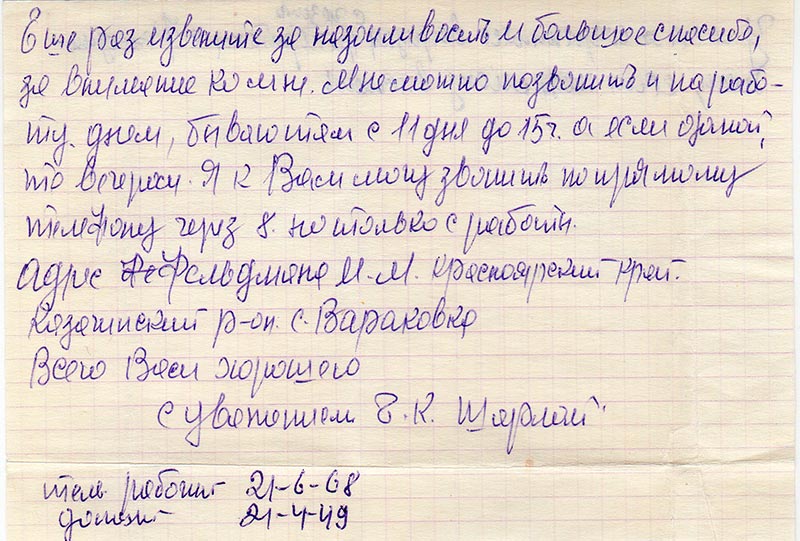 Еще раз извените за назоиливость и большое спасибо,
за внимание ко мне. Мне можно позвонить и на рабо-
ту. днем, бываю там с 11 дня до 15 г. а если домой,
то вечером. Я к Вам могу звонить по прямому
телефону через 8. но только с работы.
адрес Фельдмана И. М. Красноярский край.
Казачинский р-он. с. Вараковка
Всего Вам хорошего
с уважением Е. К.
тел. рабочий 21-6-68
домашн 21-4-49